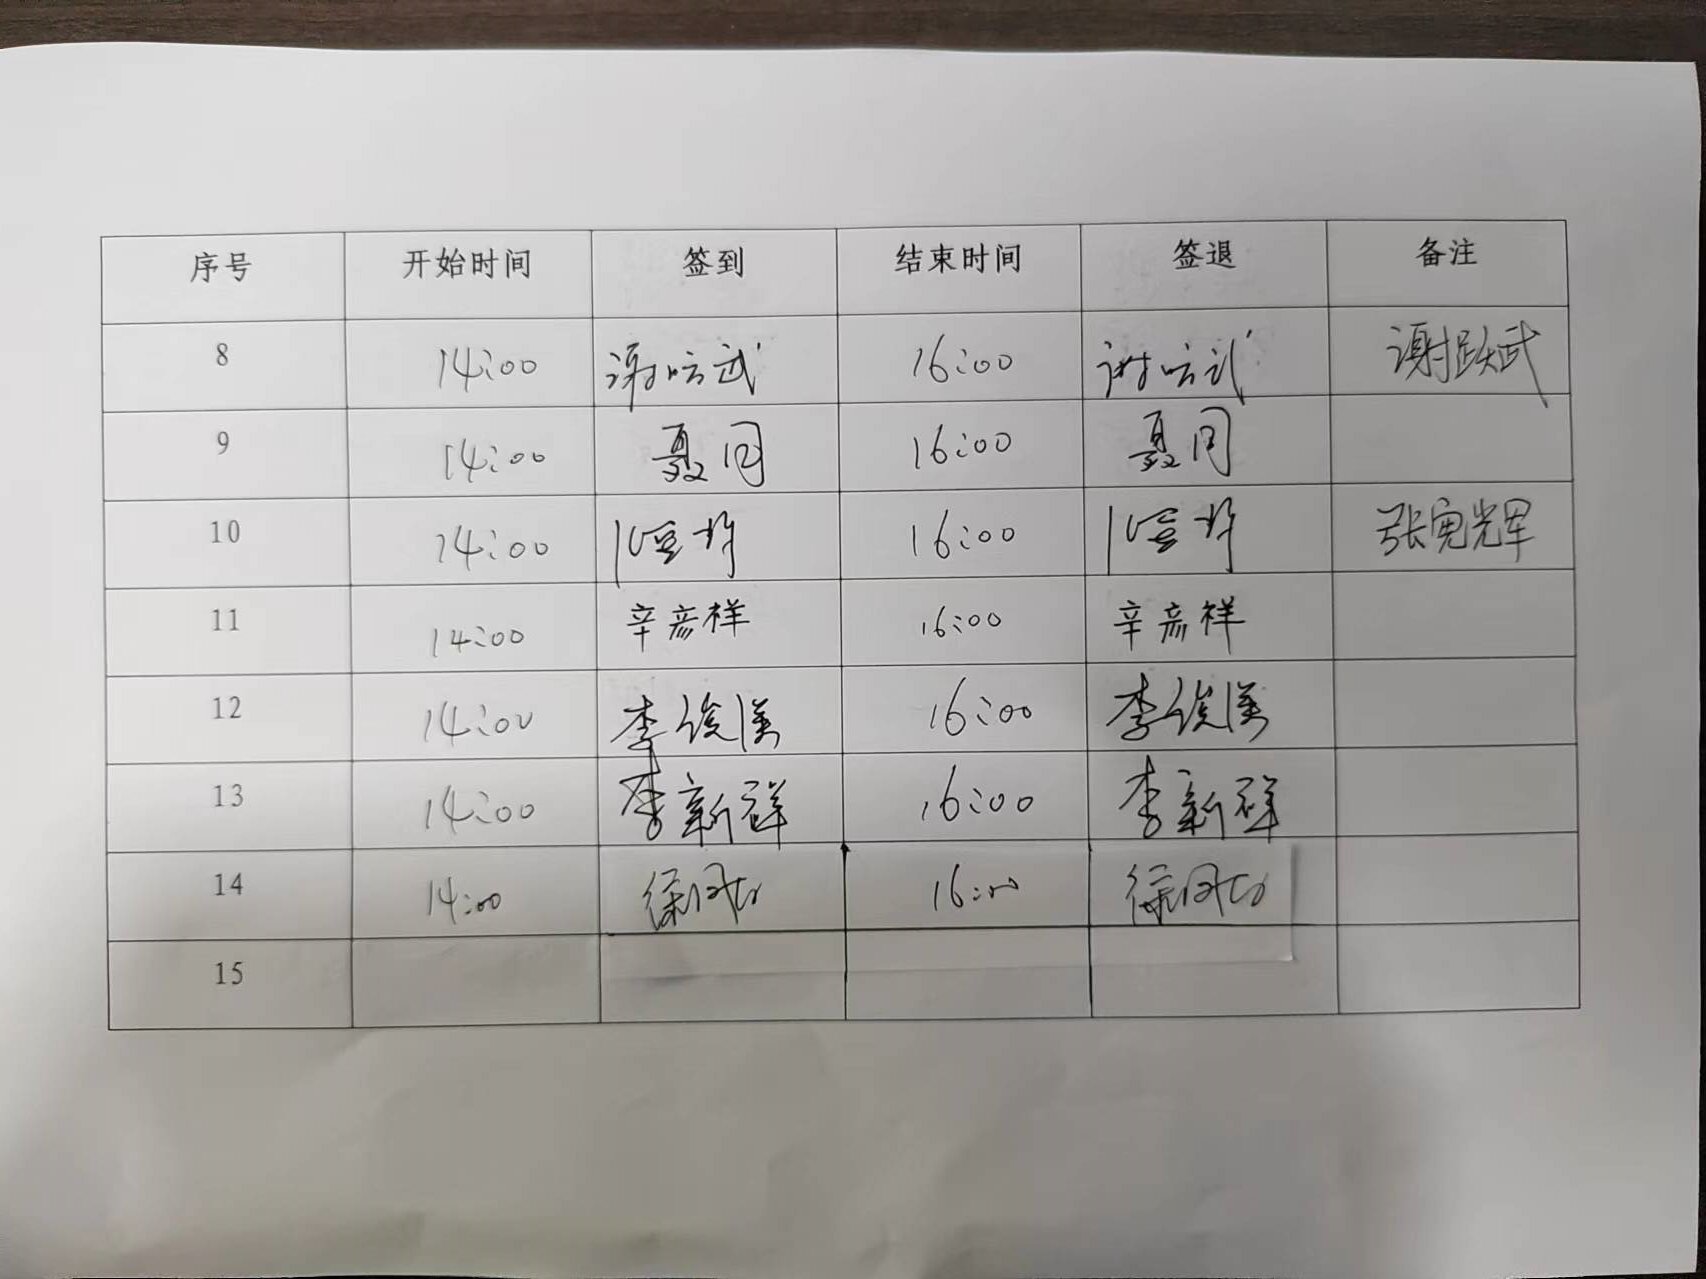 序号 开始时间 签到 结束时间 签退 备注
8 14:00 谢跃武 16:00 谢跃武 谢跃武
9 14:00 聂同 16:00 聂同
10 14:00 16:00 张宪辉
11 14:00 辛彦祥 16:00 辛彦祥
12 14:00 李俊溪 16:00 李俊溪
13 14:00 李新祥 16:00 李新祥
14 14:00 16:00
15